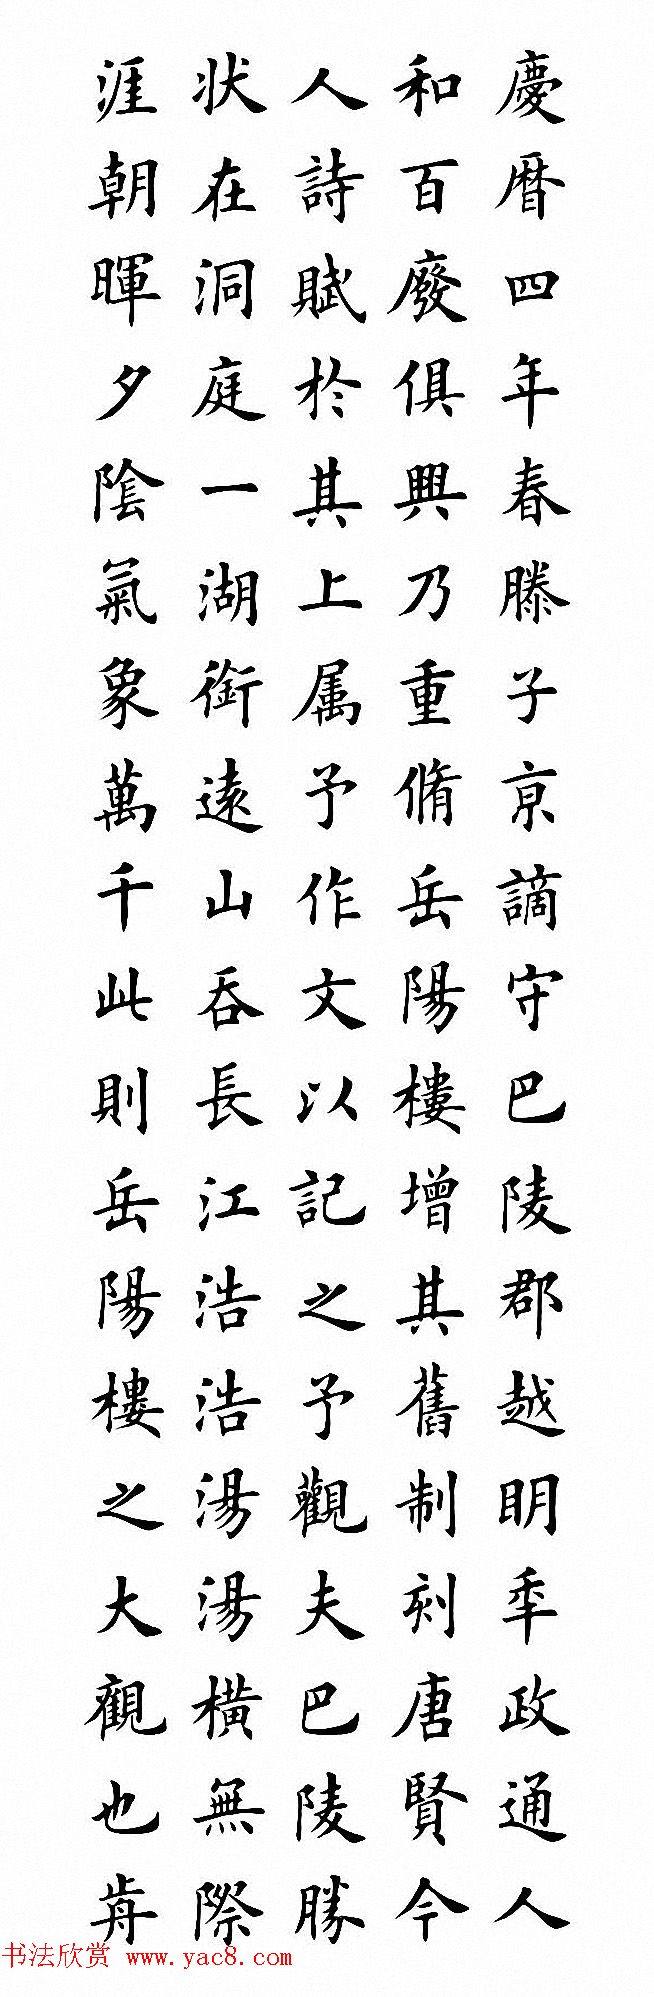 慶曆四年春滕子京謫守巴陵郡越明秊政通人
和百廢俱興乃重脩岳陽樓增其舊制刻唐賢今
人詩賦於其上属予作文以記之予觀夫巴陵勝
状在洞庭一湖銜遠山吞長江浩浩湯湯橫無際
涯朝暉夕陰氣象萬千此則岳陽樓之大觀也歬
书法欣赏 www.yac8.com